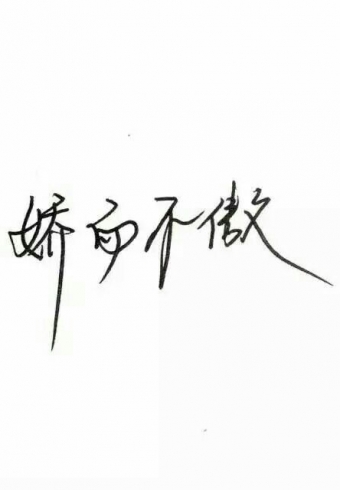 娇而不傲